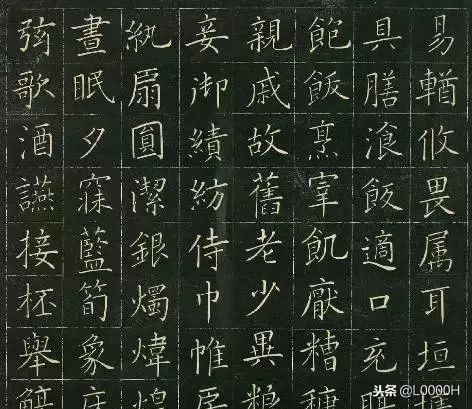 易輶攸畏属耳垣
具膳飡飯適口充
飽飫烹宰飢厭糟糠
親戚故舊老少異糧
妾御績紡侍巾帷房
紈扇圓潔銀燭煒煌
晝眠夕寐藍筍象床
弦歌酒讌接柸舉觴
头条 @L0000H